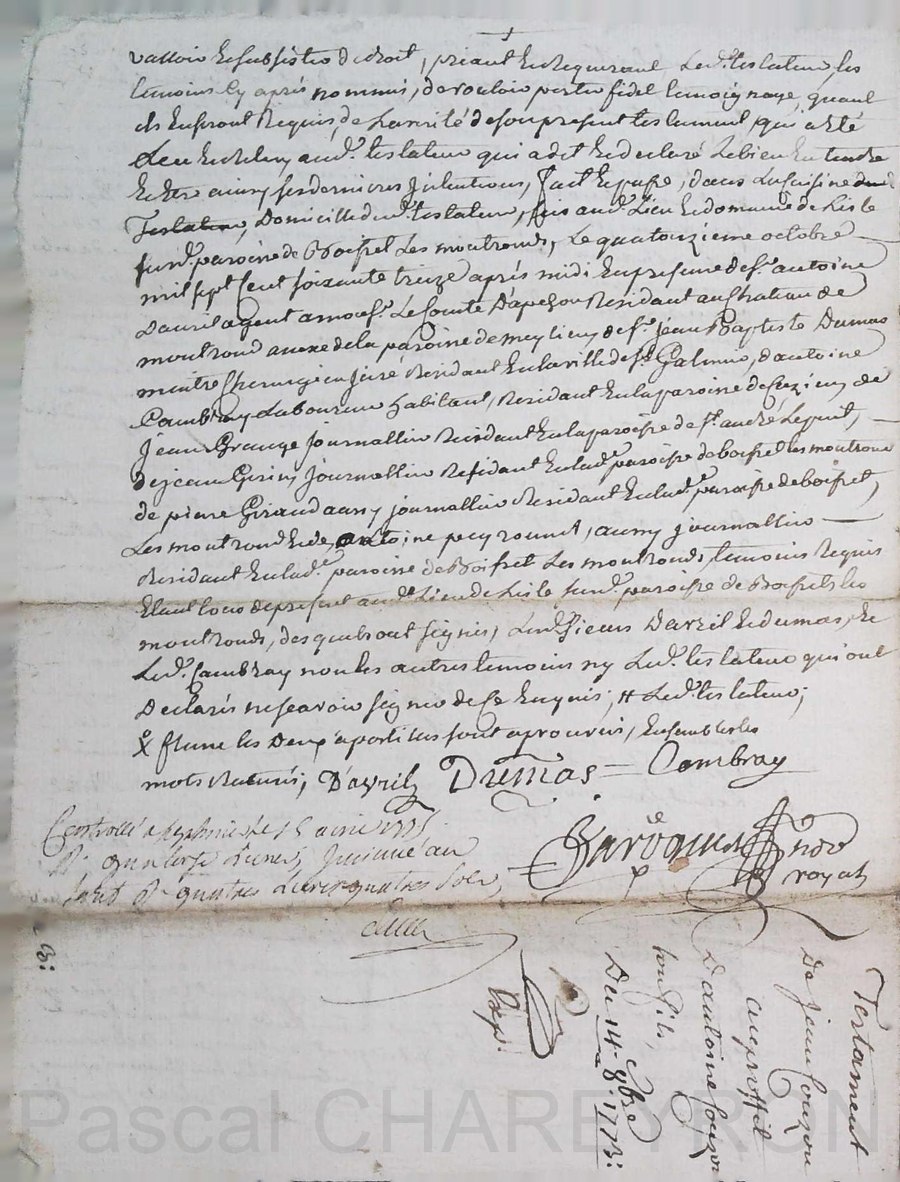 valloir et subsister de droit, priant et requerant Led.t testateur les
temoins cy aprés nommés, de vouloir porter fidel temoignage, quand
ils en seront Requis, de La verité de son present testament, qui a eté
Leu et Releu aud.t testateur qui a dit et declaré Le bien entendre
et Etre ainsy ses dernieres intentions, fait et passé, dans La cuisine dud
Testateur, Domicille dud.t testateur, sis aud.t Lieu et domaine de Lisle
susd.e paroisse de Boisset Les montronds, Le quatorzieme octobre
mil sept Cent soixante treize aprés midi En presence de s.r antoine
Davril agent a mons.r Le Comte Dapchon Residant au Chateau de
montrond anexe de la paroisse de meylieu, de s.r jean Baptiste Dumas
maitre Chirurgien juré Residant En la ville de S.t Galmier, d'antoine
Combray Laboureur habitant, Residant En la paroisse de Cuzieu, de
jean Grange journallier Residant En la paroisse de S.t andré Le puit,
de jean Girin journallier Residant En lad.e paroisse de boisset les montrond
de pierre Giraud aussy journallier Residant En lad.e paroisse de boisset,
Les montrond et de antoine peyronnet, aussy journallier
Residant En lad.e paroisse de Boisset Les montronds, temoins Requis
Etant tous de present aud.t Lieu de Lisle susd.e paroisse de Boisset les
montronds, desquels ont signés, Lesd.s sieurs Davril et dumas, et
Led.t Combray non les autres temoins ny Led.t testateur qui ont
Declarés ne scavoir signer de Ce Enquis; # Led.t testateur;
les Deux apostilles sont aprouvés, Ensemble les
mots Raturés; D'avril Dumas Combray
Controllé a le 15 avril 1775
R. quatorze Livres, insinué au
tarif R. quatres Livres quatres sols,
not.re
royal
B:
Exp.
Testament
De jean Couzon
au proffit
D'antoine Couzon
son fils,
Du 14 8.bre 1773:
Pascal CHAREYRON